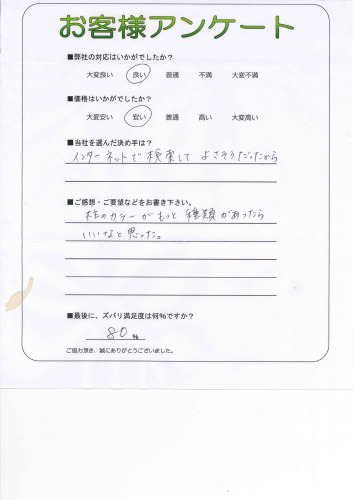 お客様アンケート
■弊社の対応はいかがでしたか？
大変良い 良い 普通 不満 大変不満
■価格はいかがでしたか？
大変安い 安い 普通 高い 大変高い
■当社を選んだ決め手は？
インターネットで検索して よさそうだったから
■ご感想・ご要望などをお書き下さい。
柱のカラーがもっと種類があったら
いいなと思った。
■最後に、ズバリ満足度は何%ですか？
80%
ご協力頂き、誠にありがとうございました。